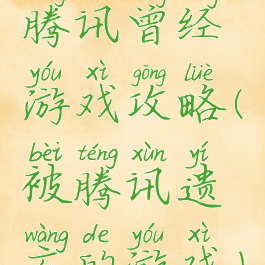 腾讯曾经
yóu xì gōng lüè
游戏攻略(
bèi téng xùn yí
被腾讯遗
wàng de yóu xì
忘的游戏)